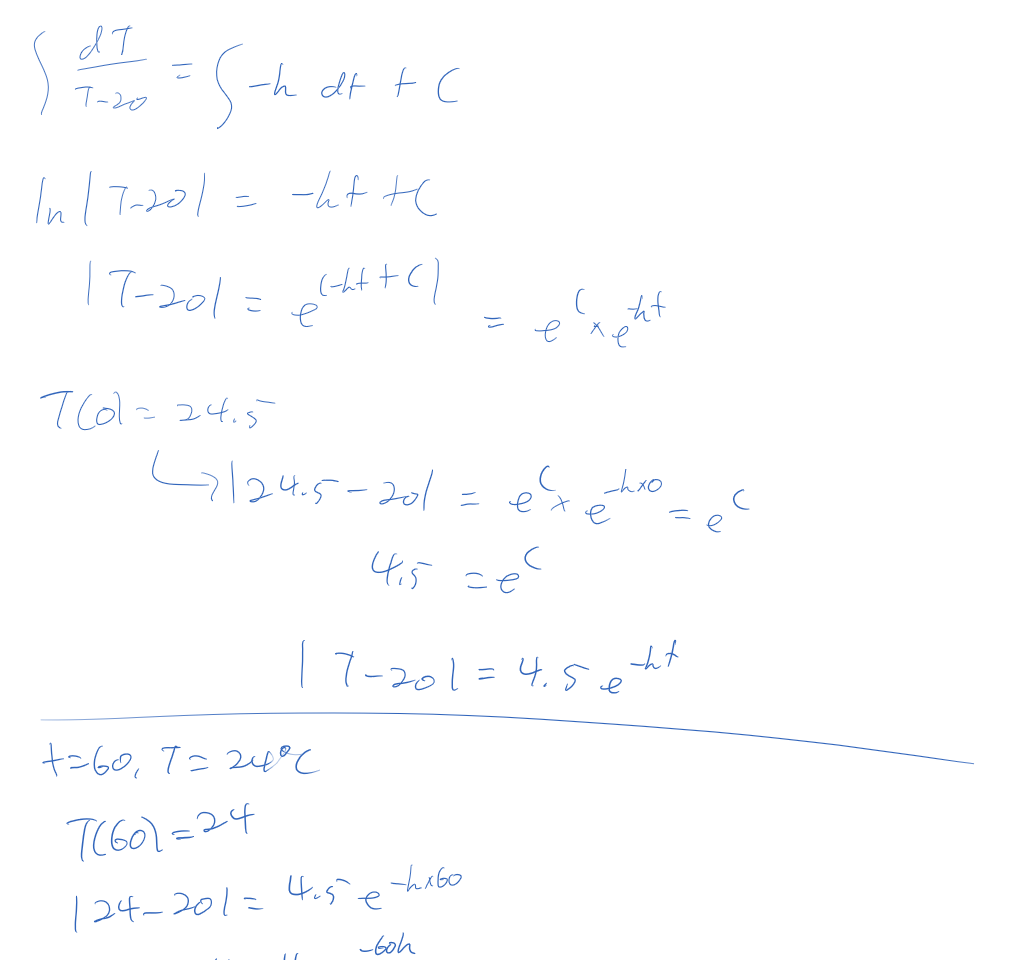 ∫ dT/(T-20) = ∫ -h dt + C
ln |T-20| = -ht + C
|T-20| = e^(-ht + C) = e^C × e^-ht
T(0) = 24.5
↳ |24.5 - 20| = e^C × e^-h×0 = e^C
4.5 = e^C
|T-20| = 4.5 e^-ht
t=60, T = 24°C
T(60) = 24
|24-20| = 4.5 e^-h×60
-60h